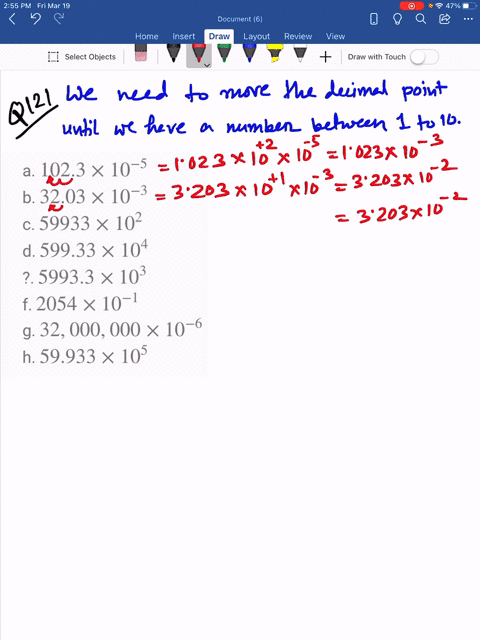 2:55 PM Fri Mar 19
47%
Document (6)
Home Insert Draw Layout Review View
Select Objects
Draw with Touch
Q121 We need to move the decimal point
until we have a number between 1 to 10.
a. 102.3 × 10⁻⁵ = 1.023 × 10⁺² × 10⁻⁵ = 1.023 × 10⁻³
b. 32.03 × 10⁻³ = 3.203 × 10⁺¹ × 10⁻³ = 3.203 × 10⁻²
= 3.203 × 10⁻²
c. 59933 × 10²
d. 599.33 × 10⁴
?. 5993.3 × 10³
f. 2054 × 10⁻¹
g. 32, 000, 000 × 10⁻⁶
h. 59.933 × 10⁵